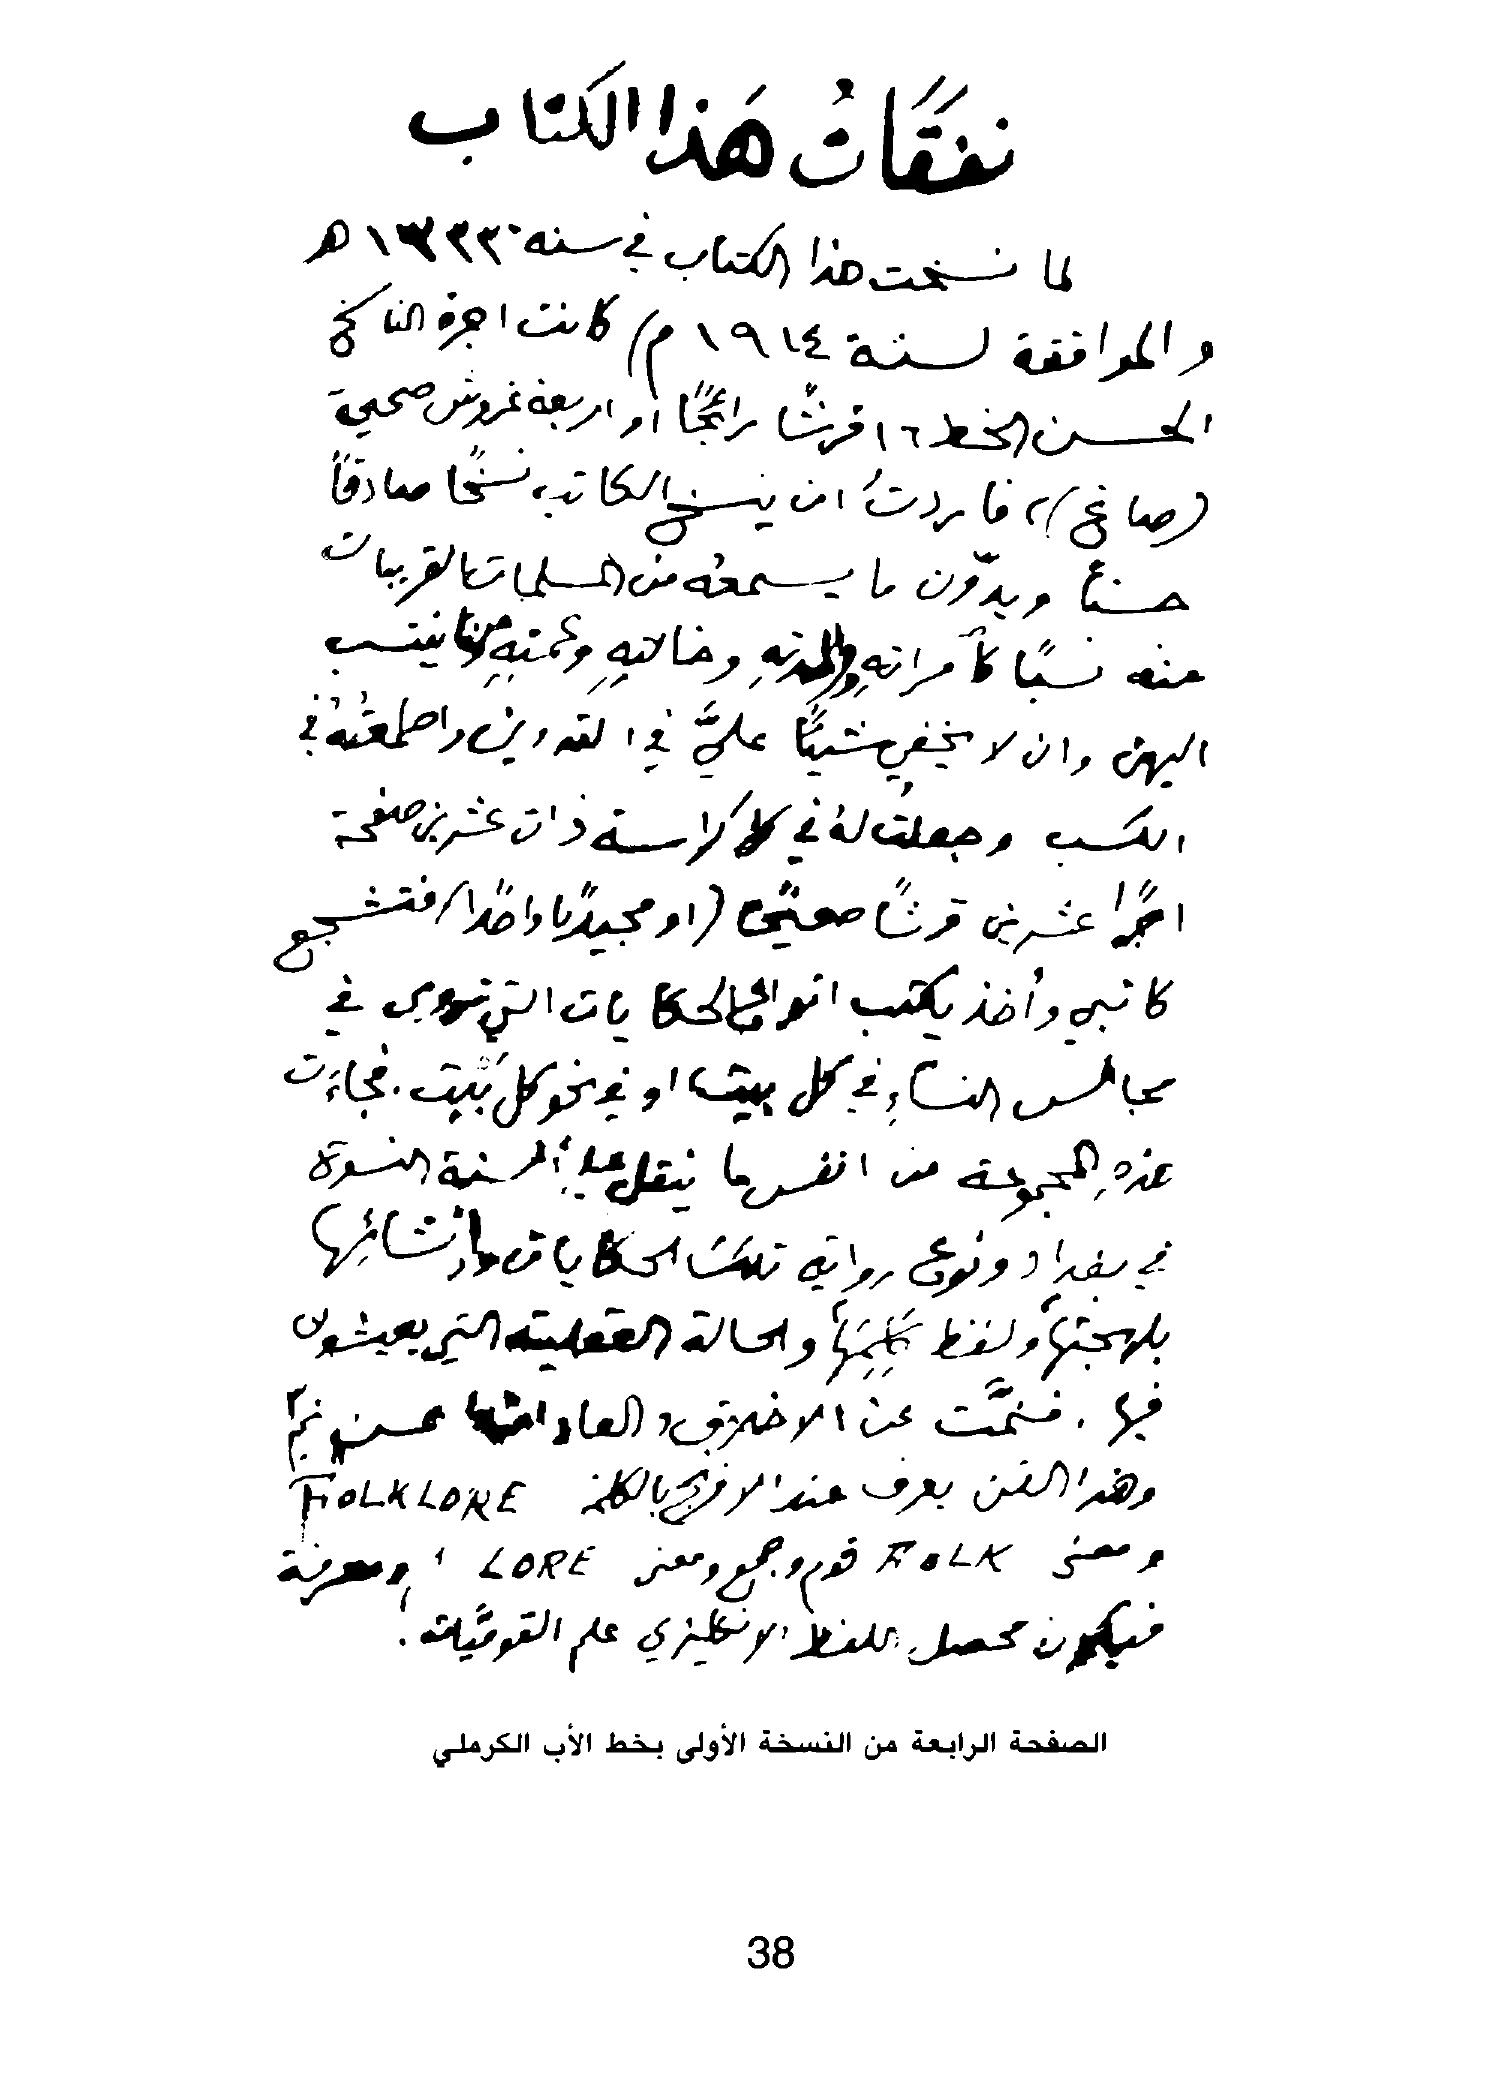 نفقَاتُ هَذا الكتاب
لما نسخت هذا الكتاب في سنه ١٣٣٣ هـ
والموافقة لسنة ١٩١٤ م) كانت اجرة الناسخ
الحسن الخط ١٦ قرشًا رائجًا او اربعة غروش صحيحة
(صاغ)، فاردتُ ان ينسخ الكاتب نسخًا صادقًا
حسنًا ويدوّن ما يسمعهُ من المسلمات القريبات
منه نسبًا كأمراتهِ ووالدتهِ وخالاتهِ وعمتهِ ينتسب
اليهن وان لا يخفي شيئًا عليَّ في التدوين واطمعتُهُ في
الكسب وجعلتُ لهُ في كل كراسة ذات عشرين صفحة
اجرًا عشرين قرشًا صحيحًا (او مجيديًا واحدًا) فتشجع
كاتبي وأخذ يكتب انواع الحكايات التي تروى في
مجالس النساءِ في كل بيت او في نحو كل بَيْت. فجاءَت
هذهِ المجموعة من انفس ما ينقل على ألسنة النسوة
في بغداد ونوع رواية تلك الحكايات وإنشائها
بلهجتها ولفظ كَلِمَها والحالة العقلية التي يعيشون
فيها. فنمَّت عن الاخلاق والعادات
وهذا الفن يعرف عند الافرنج بالكلمة FOLKLORE
ومعنى FOLK قوم وجمع ومعنى LORE ومعرفة
فيكون محصل اللفظ الانكليزي علم القوميَّات.
الصفحة الرابعة من النسخة الأولى بخط الأب الكرملي
38